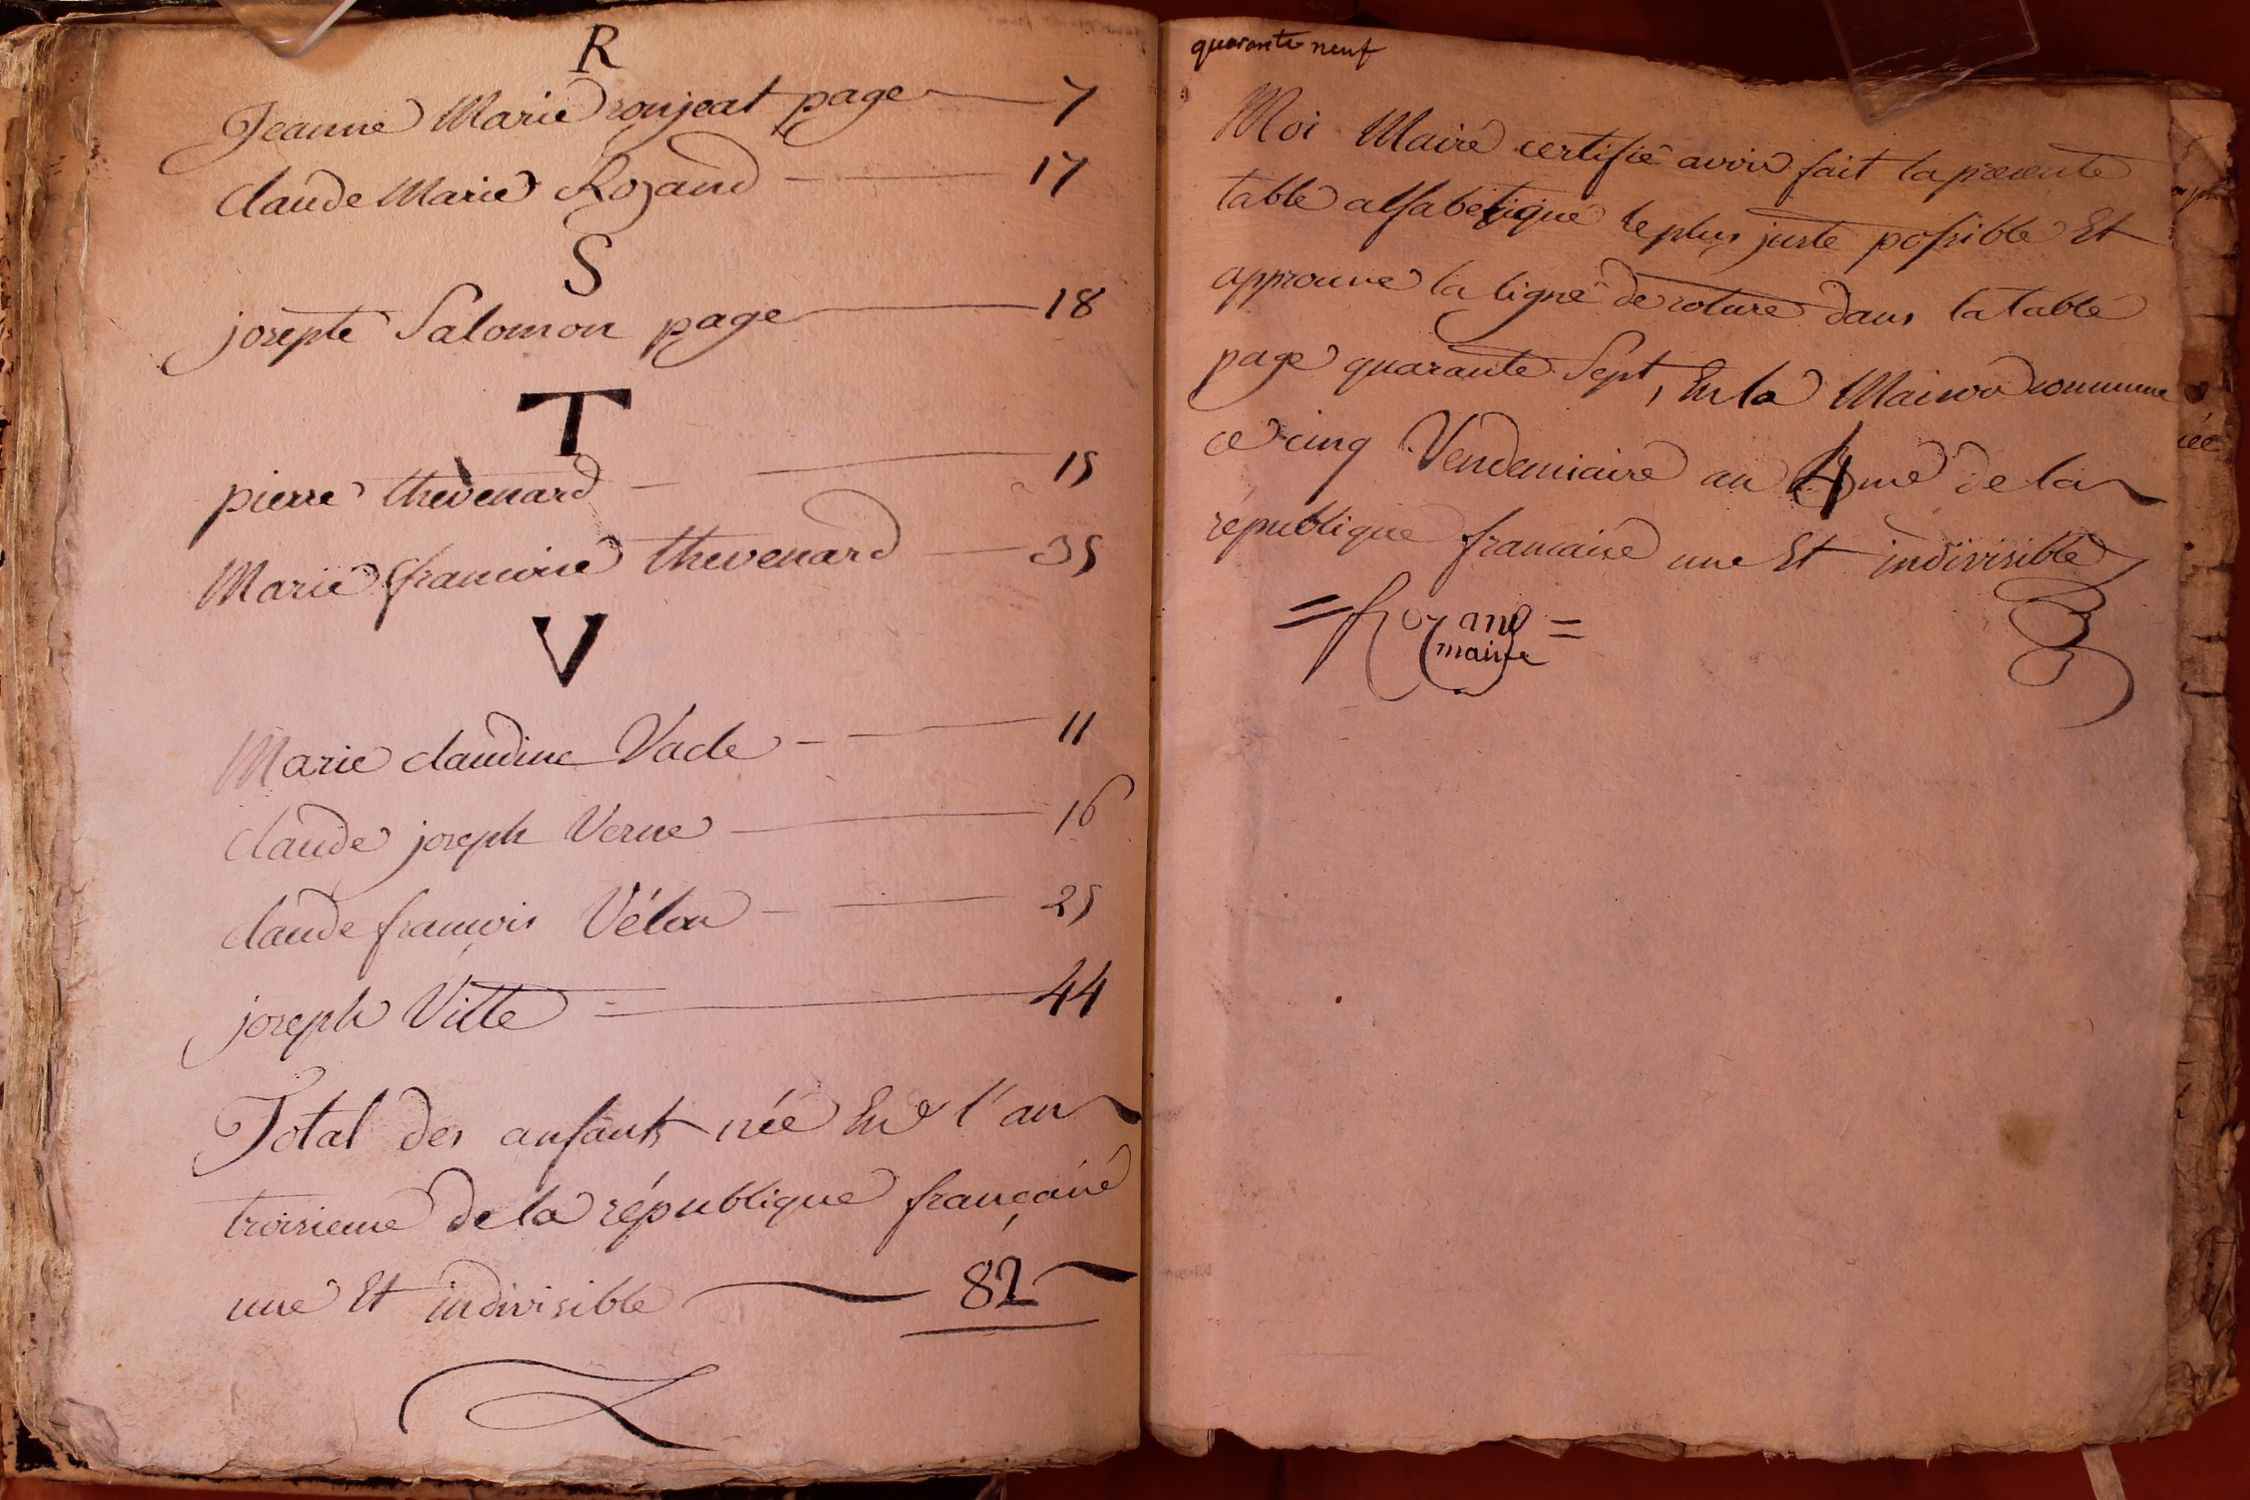 R
Jeanne Marie ronjeat page 7
claude Marie Rozand 17
S
josepte Salomon page 18
T
pierre thevenard 15
Marie francoise thevenard 35
V
Marie claudine Vade 11
claude joseph Verne 16
claude françois Vélon 25
joseph Vitte = 44
Total des anfants née En l'an
troisieme de la république française
une Et indivisible 82
quarante neuf
Moi Maire certifie avoir fait la presente
table alfabetique le plus juste possible Et
approuve la ligne de roture dans la table
page quarante Sept, En la Maison commune
ce cinq Vendemiaire an 4me de la
république francaise une Et indivisible
= Rozand =
maire